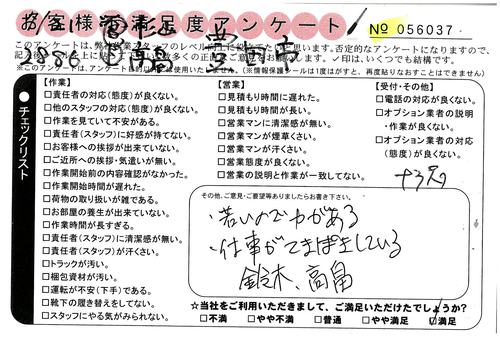 お客様の満足度アンケート
No 056037
※このアンケートは、
✓印は、いくつでも結構です。
(※情報保護シールは1度はがすと、再度貼りなおすことはできません)
チェックリスト
【作業】
□責任者の対応(態度)が良くない。
□他のスタッフの対応(態度)が良くない。
□作業を見ていて不安がある。
□責任者(スタッフ)に好感が持てない。
□お客様への挨拶が出来ていない。
□ご近所への挨拶・気遣いが無い。
□作業開始前の内容確認がなかった。
□作業開始時間が遅れた。
□荷物の取り扱いが雑である。
□お部屋の養生が出来ていない。
□作業時間が長すぎる。
□責任者(スタッフ)に清潔感が無い。
□責任者(スタッフ)が汗くさい。
□トラックが汚い。
□梱包資材が汚い。
□運転が不安(下手)である。
□靴下の履き替えをしてない。
□スタッフにやる気がみられない。
【営業】
□見積もり時間に遅れた。
□見積もり時間が長い。
□営業マンに清潔感が無い。
□営業マンが煙草くさい。
□営業マンが汗くさい。
□営業態度が良くない。
□営業の説明と作業が一致してない。
【受付・その他】
□電話の対応が良くない。
□オプション業者の説明
・作業が良くない。
□オプション業者の対応
(態度)が良くない。
その他、ご意見・ご要望等ありましたらお書き下さい。
・若いので力がある
・仕事がてきぱきしている
鈴木、高畠
☆当社をご利用いただきまして、ご満足いただけたでしょうか?
□不満 □やや不満 □普通 □やや満足 ☑満足